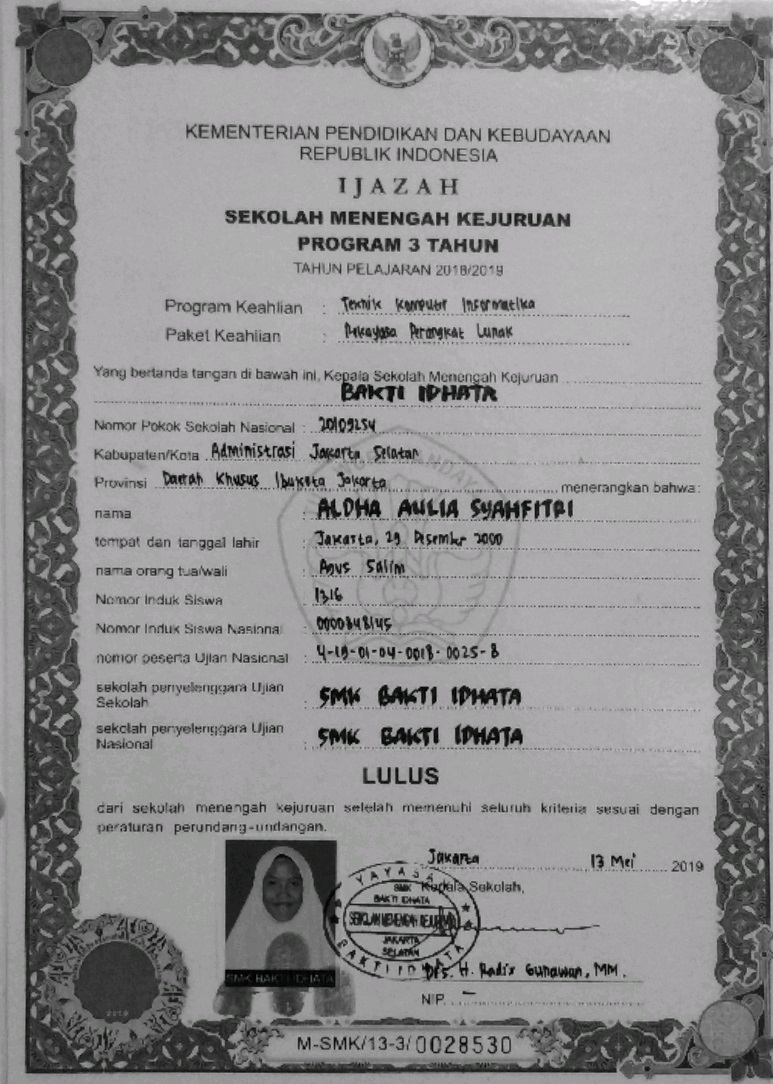 KEMENTERIAN PENDIDIKAN DAN KEBUDAYAAN
REPUBLIK INDONESIA
IJAZAH
SEKOLAH MENENGAH KEJURUAN
PROGRAM 3 TAHUN
TAHUN PELAJARAN 2018/2019
Program Keahlian : Teknik Komputer Informatika
Paket Keahlian : Rekayasa Perangkat Lunak
Yang bertanda tangan di bawah ini, Kepala Sekolah Menengah Kejuruan
BAKTI IDHATA
Nomor Pokok Sekolah Nasional : 20109254
Kabupaten/Kota Administrasi Jakarta Selatan
Provinsi Daerah Khusus Ibukota Jakarta menerangkan bahwa:
nama : ALDHA AULIA SYAHFITRI
tempat dan tanggal lahir : Jakarta, 29 Desember 2000
nama orang tua/wali : Agus Salim
Nomor Induk Siswa : 1316
Nomor Induk Siswa Nasional : 0000848145
nomor peserta Ujian Nasional : 4-19-01-04-0018-0025-8
sekolah penyelenggara Ujian
Sekolah : SMK BAKTI IDHATA
sekolah penyelenggara Ujian
Nasional : SMK BAKTI IDHATA
LULUS
dari sekolah menengah kejuruan setelah memenuhi seluruh kriteria sesuai dengan
peraturan perundang-undangan.
Jakarta 13 Mei 2019
Kepala Sekolah,
YAYASAN
SMK
BAKTI IDHATA
SEKOLAH MENENGAH KEJURUAN
JAKARTA
SELATAN
BAKTI IDHATA
SMK BAKTI IDHATA
Drs. H. Radis Gunawan, MM.
NIP. –
2019
M-SMK/13-3/0028530